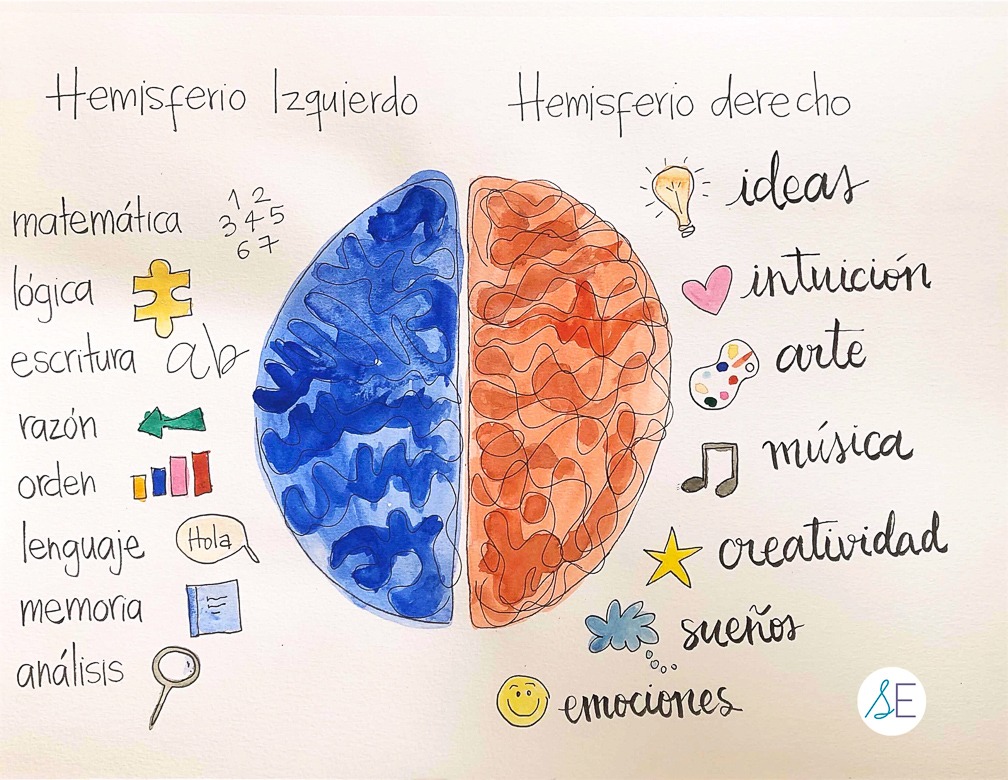 Hemisferio Izquierdo
matemática
1 2
3 4 5
6 7
lógica
escritura ab
razón
orden
lenguaje Hola
memoria
análisis
Hemisferio derecho
ideas
intuición
arte
música
creatividad
sueños
emociones
SE